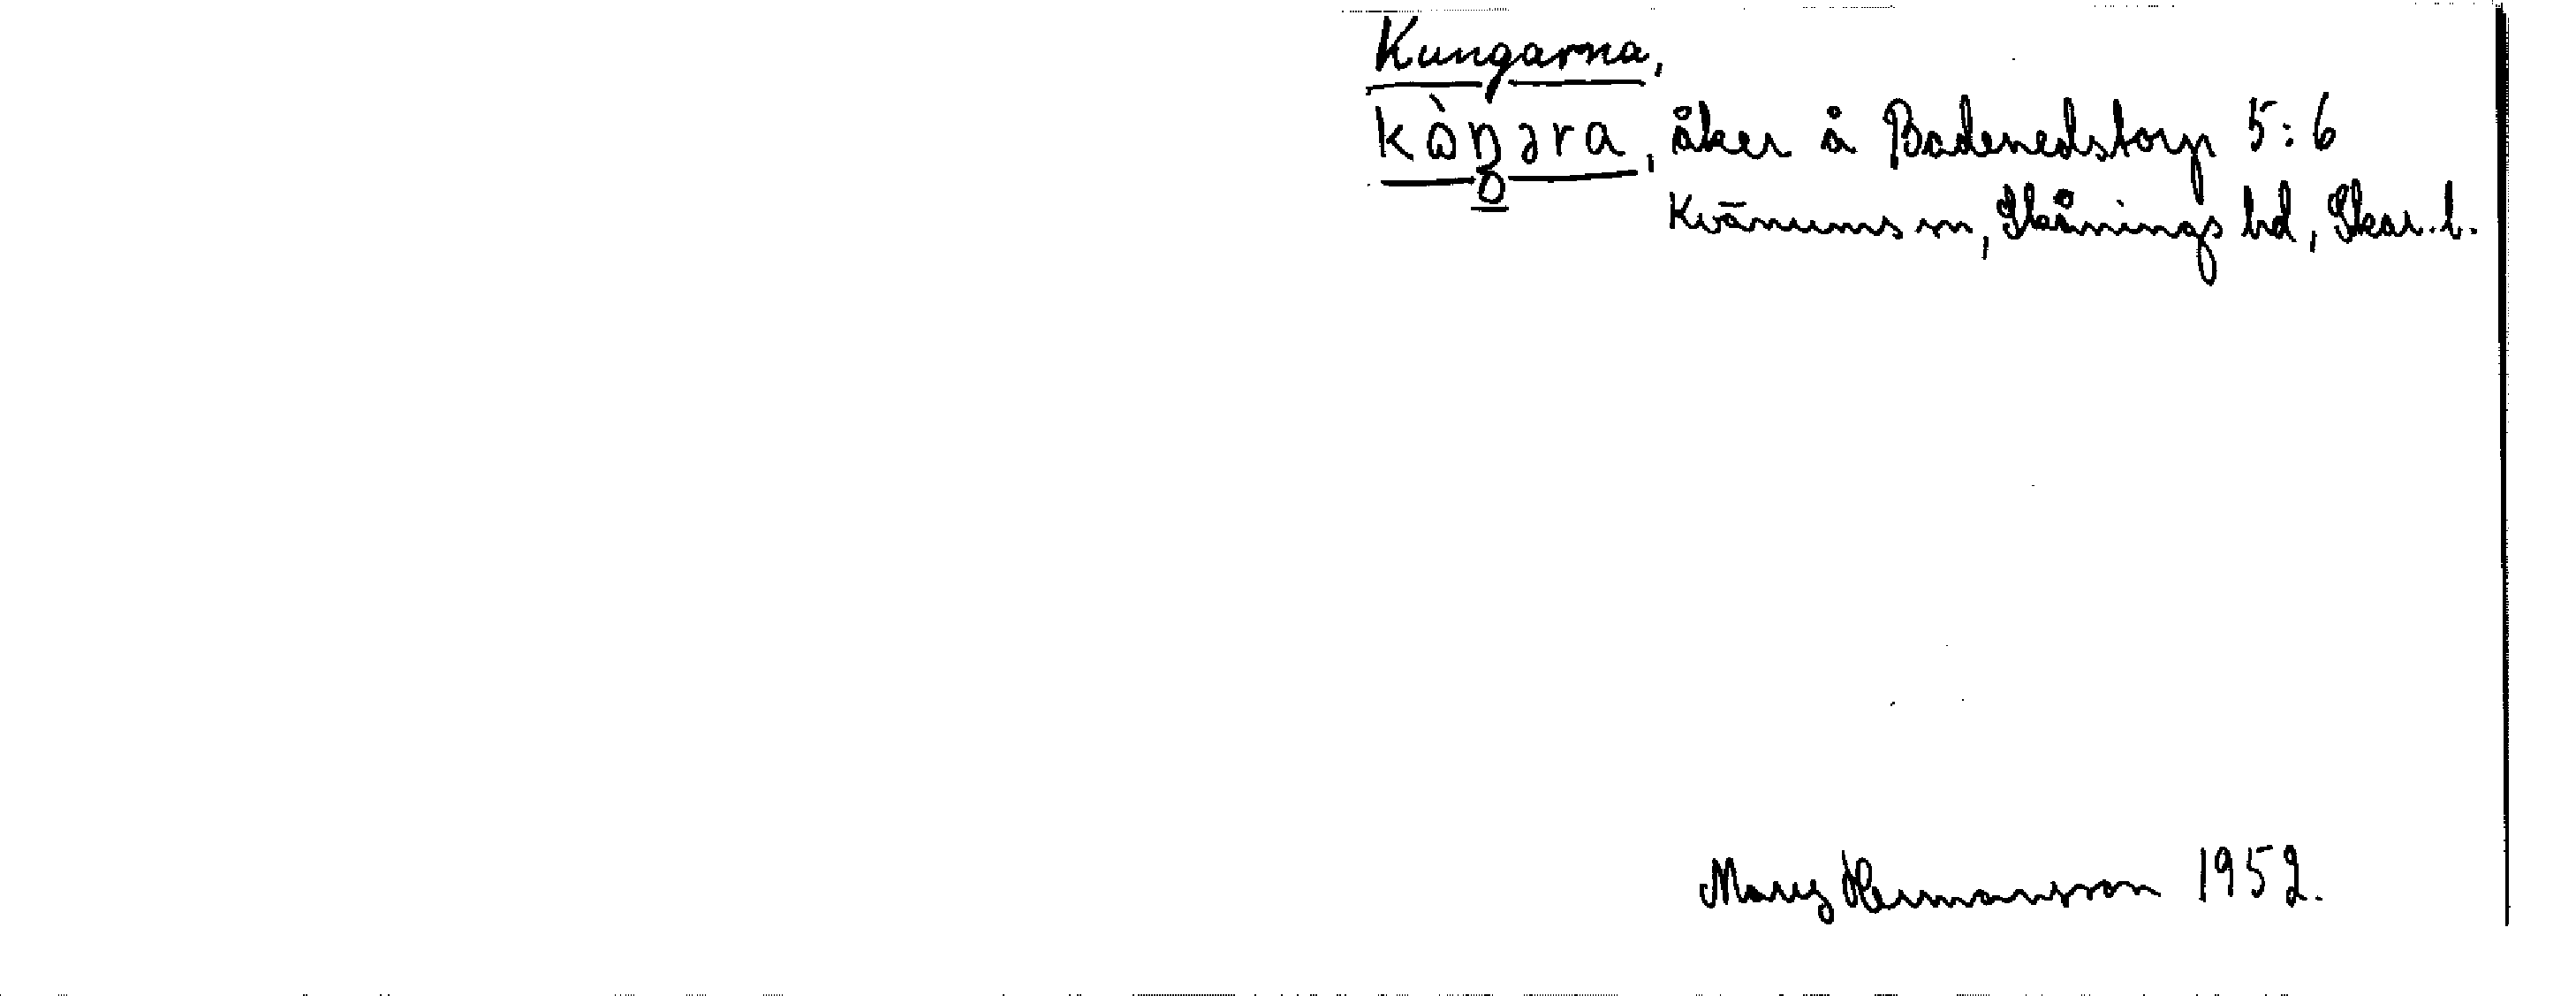 Kungarna,
kòŋara, åker å Badenedstorp 5:6
Kvänums sn, Skånings hd, Skar. l.
Mary Hermansson 1952.